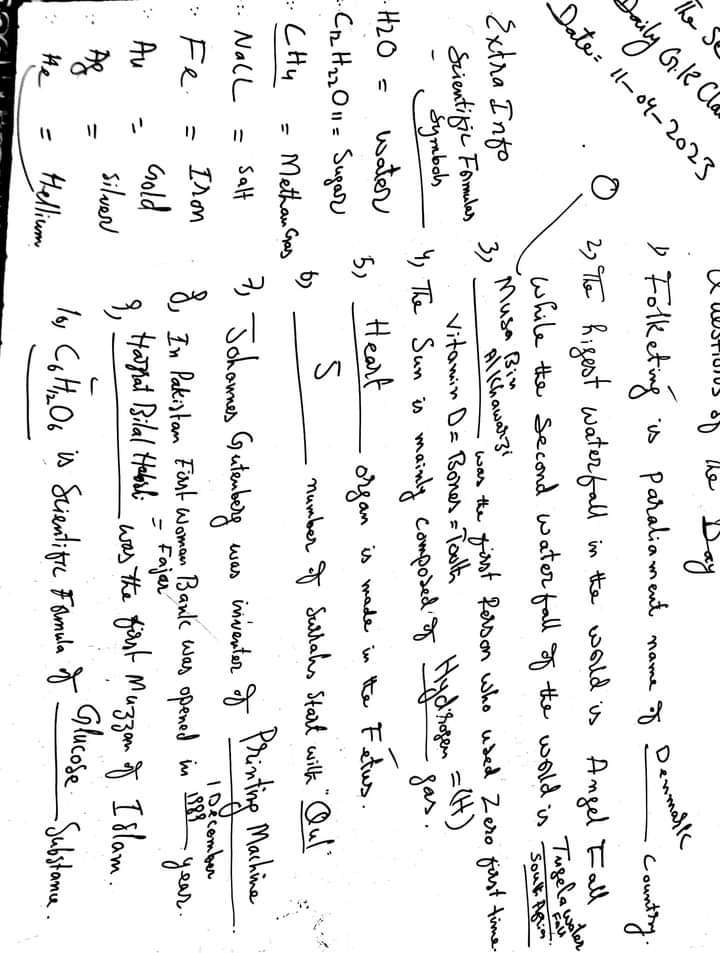 The Se
Daily G.K Clas
Date= 11-04-2023
Questions of the Day
1, Folketing is Paraliament name of Denmark Country.
2, The higest waterfall in the world is Angel Fall
while the Second waterfall of the world is Tugela water Fall South Africa
3, Musa Bin Alkhawarzi was the first Person who used Zero first time.
Vitamin D = Bones = Tooth
4, The Sun is mainly composed of Hydrogen = (H) gas.
5, Heart organ is made in the Fetus.
6, 5 number of Surrahs Start with "Qul"
7, Johannes Gutenberg was inventer of Printing Machine.
8, In Pakistan First Woman Bank was opened in 1 December 1989 year.
9, Hazrat Bilal Habshi = Fajar was the first Muzzan of Islam.
10, C6H12O6 is Scientific Formula of Glucose Substance.
Extra Info
- Scientific Formulas
Symbols
H2O = water
C12H22O11 = Sugar
CH4 = Methan Gas
NaCL = Salt
Fe. = Iron
Au = Gold
Ag = Silver
He = Hellium